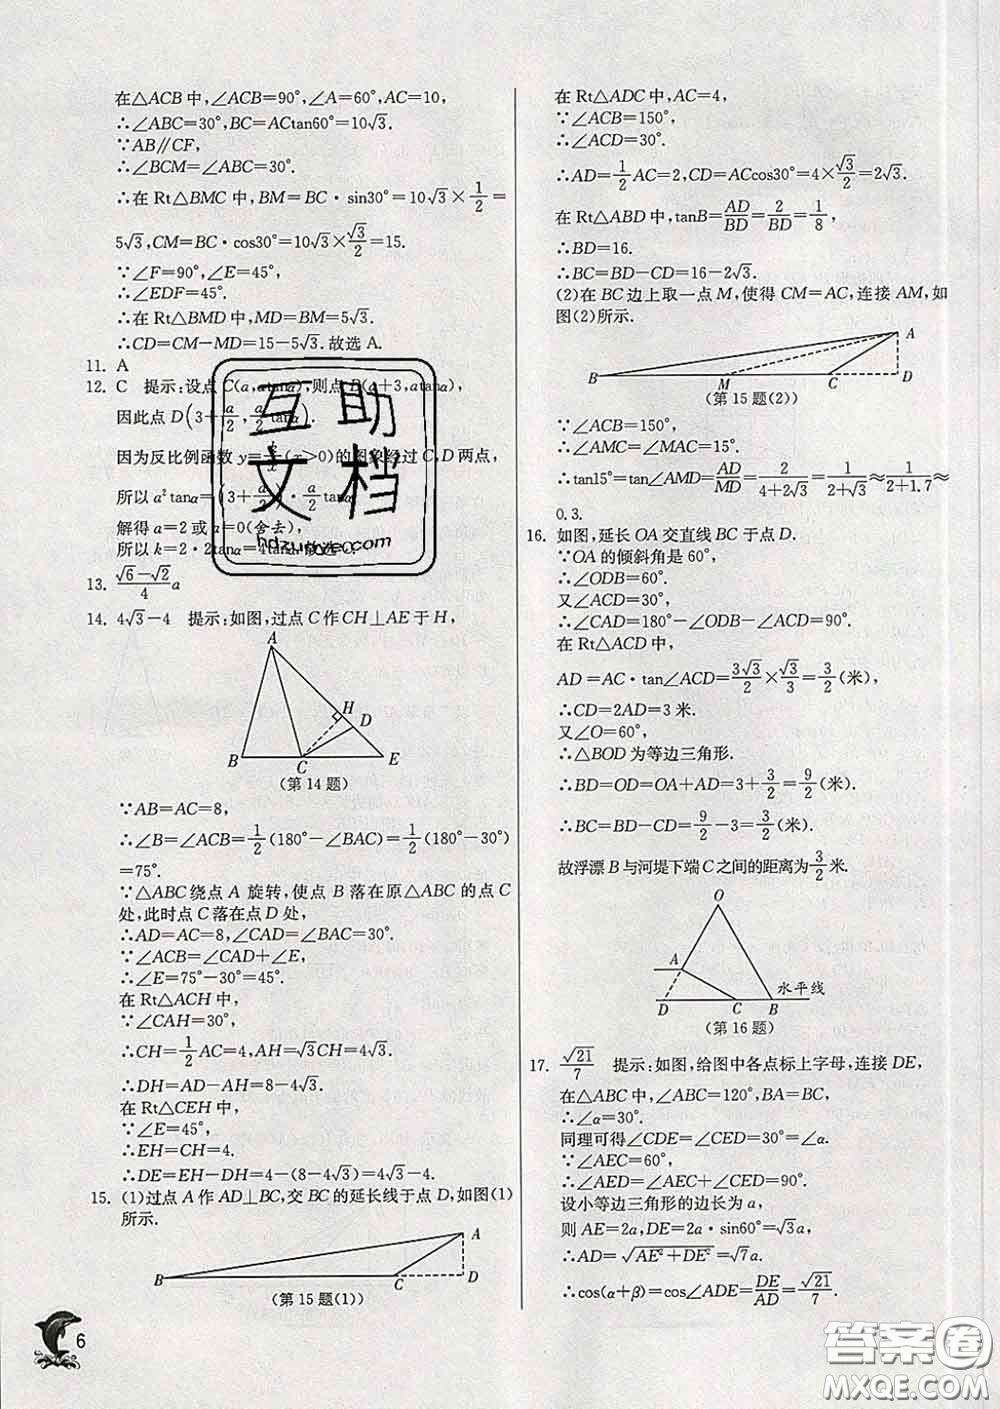 在△ACB中,∠ACB=90°,∠A=60°,AC=10,
∴∠ABC=30°,BC=ACtan60°=10√3.
∵AB∥CF,
∴∠BCM=∠ABC=30°.
∴在Rt△BMC中,BM=BC·sin30°=10√3×1/2=
5√3,CM=BC·cos30°=10√3×√3/2=15.
∵∠F=90°,∠E=45°,
∴∠EDF=45°.
∴在Rt△BMD中,MD=BM=5√3.
∴CD=CM-MD=15-5√3.故选A.
11. A
12. C 提示:设点C(a,atanα),则点B(a+3,atanα),
因此点D(3+a/2,a/2 tanα).
因为反比例函数y=k/x(x>0)的图象经过C,D两点,
所以a²tanα=(3+a/2)·a/2 tanα
解得a=2或a=0(舍去),
所以k=2·2tanα=4tanα
互助
文档
hdzuoye.com
13. (√6-√2)/4 a
14. 4√3-4 提示:如图,过点C作CH⊥AE于H,
A
H
D
B
C
E
(第14题)
∵AB=AC=8,
∴∠B=∠ACB=1/2(180°-∠BAC)=1/2(180°-30°)
=75°.
∵△ABC绕点A旋转,使点B落在原△ABC的点C
处,此时点C落在点D处,
∴AD=AC=8,∠CAD=∠BAC=30°.
∵∠ACB=∠CAD+∠E,
∴∠E=75°-30°=45°.
在Rt△ACH中,
∵∠CAH=30°,
∴CH=1/2AC=4,AH=√3CH=4√3.
∴DH=AD-AH=8-4√3.
在Rt△CEH中,
∵∠E=45°,
∴EH=CH=4.
∴DE=EH-DH=4-(8-4√3)=4√3-4.
15. (1)过点A作AD⊥BC,交BC的延长线于点D,如图(1)
所示.
A
B
C
D
(第15题(1))
6
在Rt△ADC中,AC=4,
∵∠ACB=150°,
∴∠ACD=30°.
∴AD=1/2AC=2,CD=ACcos30°=4×√3/2=2√3.
在Rt△ABD中,tanB=AD/BD=2/BD=1/8,
∴BD=16.
∴BC=BD-CD=16-2√3.
(2)在BC边上取一点M,使得CM=AC,连接AM,如
图(2)所示.
A
B
M
C
D
(第15题(2))
∵∠ACB=150°,
∴∠AMC=∠MAC=15°.
∴tan15°=tan∠AMD=AD/MD=2/(4+2√3)=1/(2+√3)≈1/(2+1.7)≈
0.3.
16. 如图,延长OA交直线BC于点D.
∵OA的倾斜角是60°,
∴∠ODB=60°.
又∠ACD=30°,
∴∠CAD=180°-∠ODB-∠ACD=90°.
在Rt△ACD中,
AD=AC·tan∠ACD=3√3/2×√3/3=3/2(米),
∴CD=2AD=3米.
又∠O=60°,
∴△BOD为等边三角形.
∴BD=OD=OA+AD=3+3/2=9/2(米).
∴BC=BD-CD=9/2-3=3/2(米).
故浮漂B与河堤下端C之间的距离为3/2米.
O
A
水平线
D
C
B
(第16题)
17. √21/7 提示:如图,给图中各点标上字母,连接DE,
在△ABC中,∠ABC=120°,BA=BC,
∴∠α=30°.
同理可得∠CDE=∠CED=30°=∠α.
∵∠AEC=60°,
∴∠AED=∠AEC+∠CED=90°.
设小等边三角形的边长为a,
则AE=2a,DE=2a·sin60°=√3a,
∴AD=√(AE²+DE²)=√7a.
∴cos(α+β)=cos∠ADE=DE/AD=√21/7.
答案卷
MXQE.COM